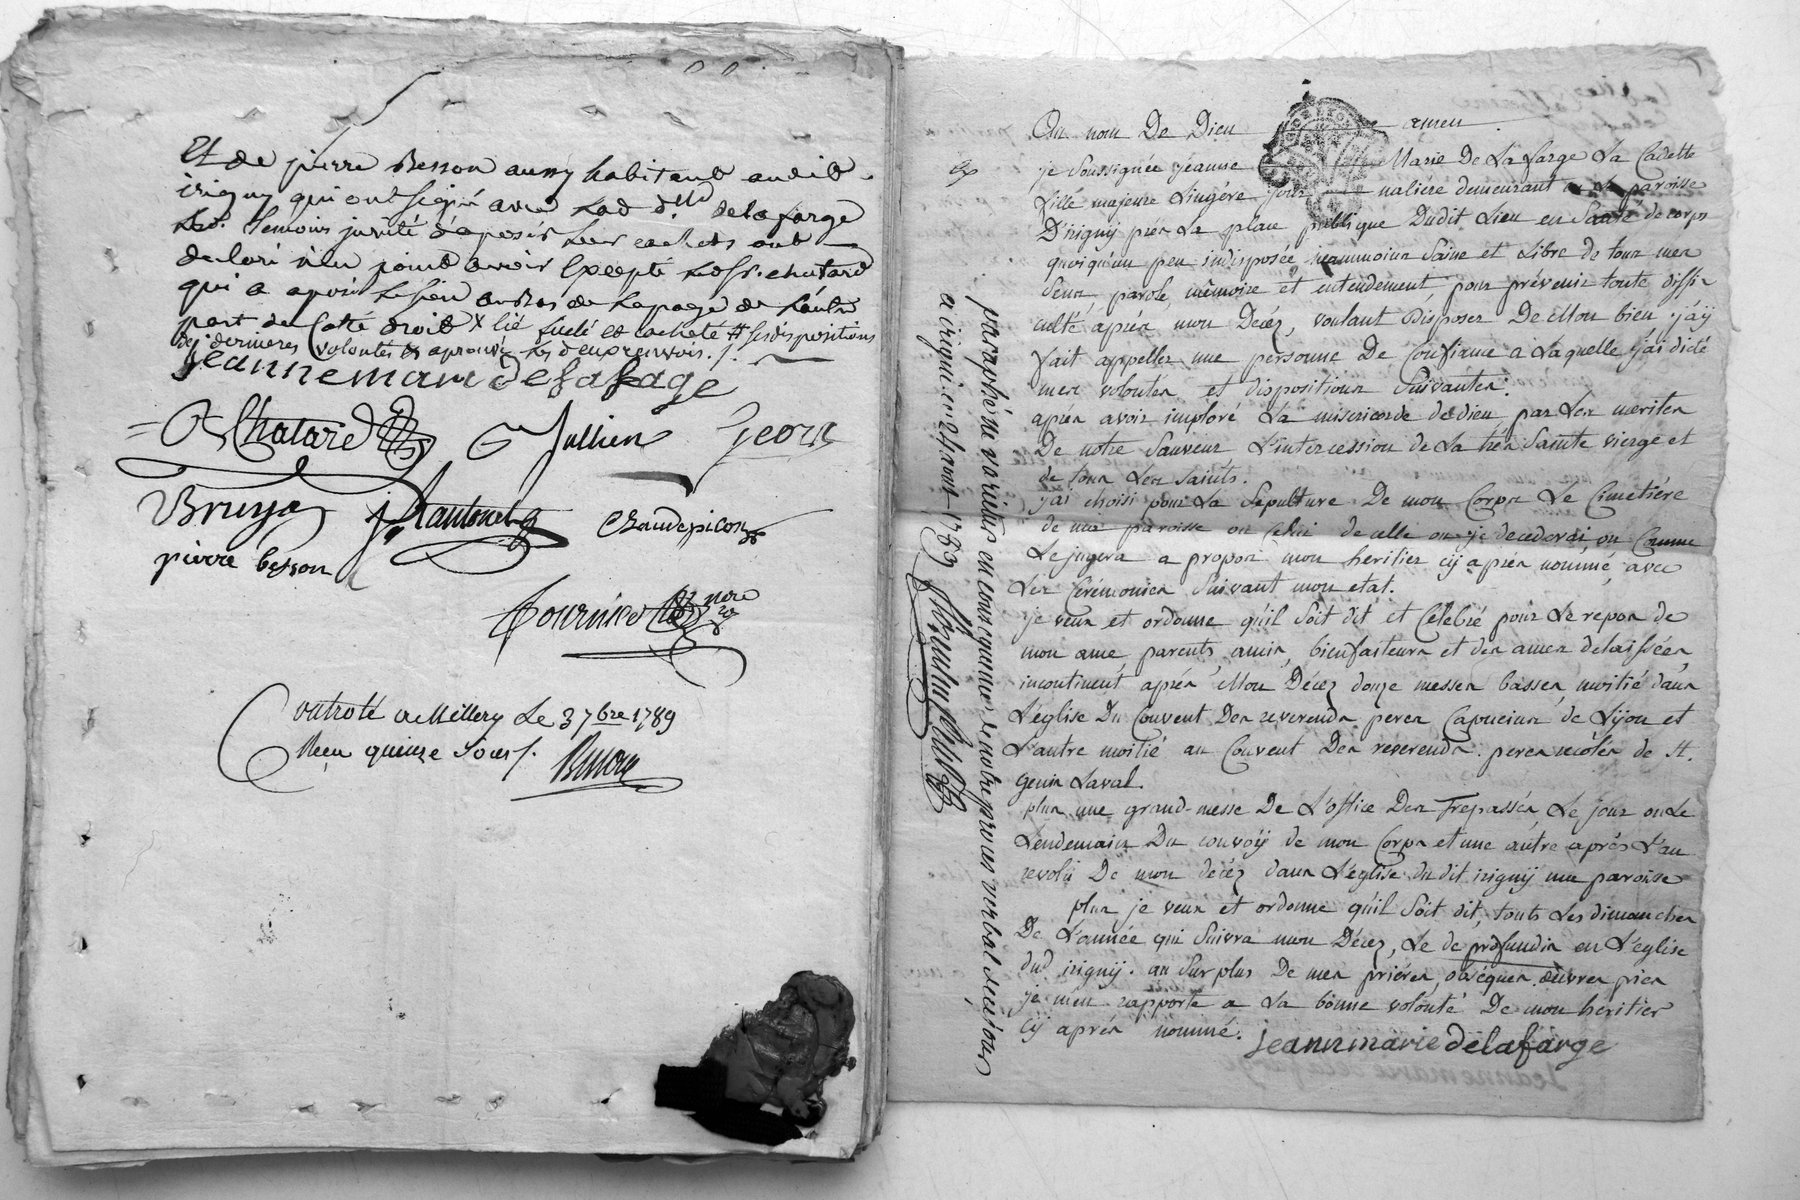 Et de pierre Besson aussy habitant audit
irigny qui ont signé avec lad. dlle delafarge
lesd. temoins invité d'aposér leur cachets ont
declaré n'en point avoir Excepté led. sr. chatard
qui a aposé le sien au bas de la page de l'autre
part du Cotté droit x lié scelé et cacheté # ses dispositions
de dernieres volontés et aprouvé les deux renvois ./.
jeanne marie delafarge
Chatard Jullien Georis
Bruyas Chaudepicon
pierre besson
fournier nore
Controlé a Millery Le 3 7bre 1789
Reçu quinze sous /.
Au nom De Dieu amen
je Soussignée jeanne Marie De La farge La Cadette
fille majeure Lingére journaliére demeurant en la paroisse
D'irigny prés La place publique Dudit Lieu en Santé de corps
quoiqu'un peu indisposée neanmoins Saine et Libre de tous mes
Sens, parole, mémoire et entendement, pour prévenir toute diffi
culté aprés mon Decéz, voulant Disposer De Mon bien j'aÿ
fait appeller une personne De Confiance a Laquelle j'ai dicté
mes volontes et dispositions Suivantes:
aprés avoir imploré La misericorde de dieu par Les merites
De notre Sauveur L'intercession de La trés Sainte vierge et
de tous Les Saints.
j'ai choisi pour La Sepulture De mon Corps Le Cimetiére
de ma paroisse ou Celui de celle ou je decederai ou Comme
Le jugera a propos mon heritier cÿ aprés nommé, avec
Les Cérémonies Suivant mon etat.
je veux et ordonne qu'il Soit dit et Célébré pour Le repos de
mon ame, parents, amis, bienfaiteurs et des ames delaissées,
incontinent aprés Mon Décéz douze messes basses, moitié dans
L'église Du Couvent Des reverends peres Capucins de Lÿon et
L'autre moitié au Couvent Des reverends peres récolés de St.
genis Laval.
plus une grand-messe De L'office Des Trepassés, Le jour ou Le
Lendemain Du convoÿ de mon Corps et une autre aprés L'an
revolu De mon décéz dans L'église du dit irignÿ ma paroisse
plus je veux et ordonne qu'il Soit dit, touts Les dimanches
De L'année qui Suivra mon Décéz, Le de profundis en L'église
dud. irignÿ. au Surplus De mes priéres, obséques, œuvres pies
je m'en rapporte a La bonne volonté De mon héritier
Cÿ aprés nommé.
jeannemarie delafarge
paraphé ne varietur en consequence de notre procès verbal de ce jour
a irigni ce 1789